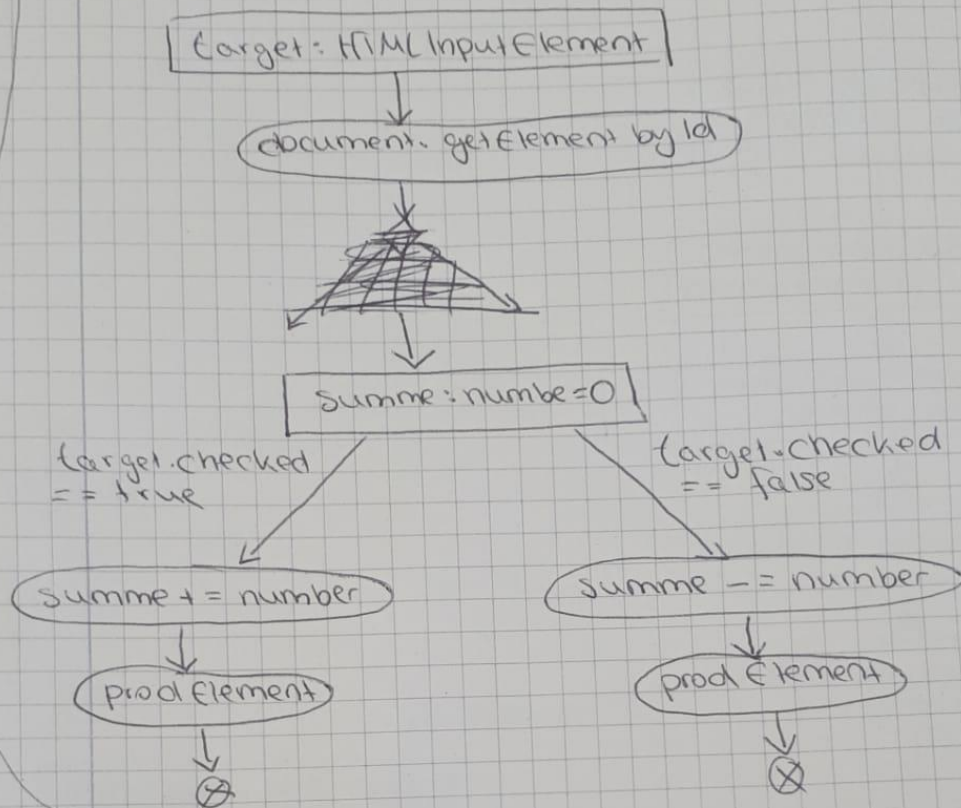 target: HTMLInputElement
document.getElement by Id
summe: numbe=0
target.checked
== true
target.checked
== false
summe += number
summe -= number
prodElement
prodElement